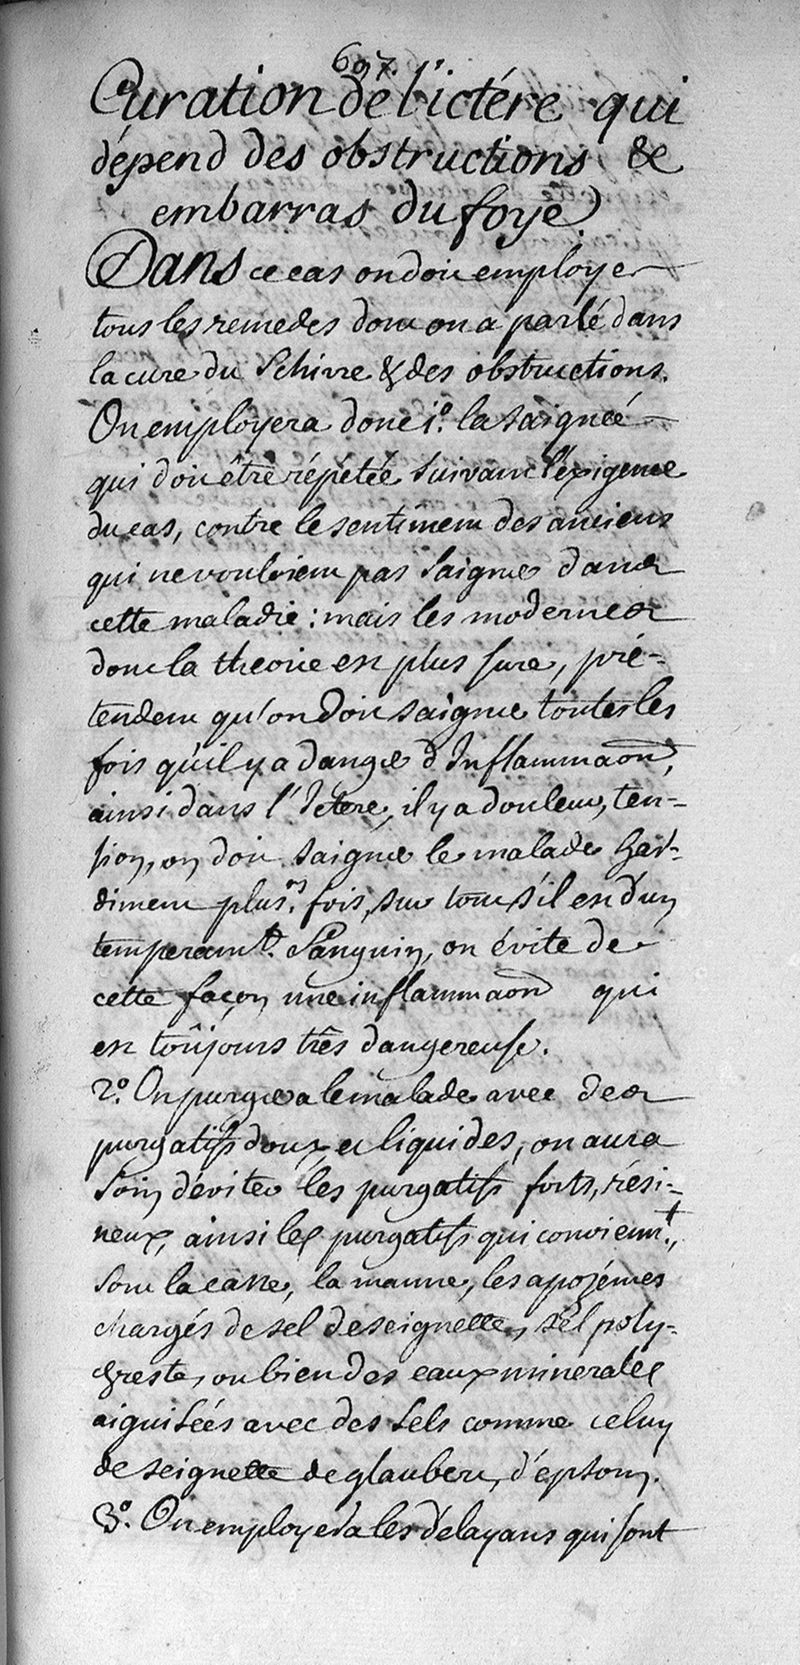 697.
Curation de l'ictére qui
dépend des obstructions &
embarras du foye.
Dans ce cas on doit employer
tous les remedes dont on a parlé dans
la cure du Schirre & des obstructions.
On employera donc 1.º la saignée
qui doit être répétée suivant l'éxigence
du cas, contre le sentiment des anciens
qui ne vouloient pas saigner dans
cette maladie : mais les modernes
dont la theorie est plus sure, pré-
tendent qu'on doit saigner toutes les
fois qu'il y a danger d'Inflammaon,
ainsi dans l'Ictere, il y a douleur, ten-
sion, on doit saigner le malade har-
diment plus.rs fois, sur tout s'il est d'un
temperamt. Sanguin, on évite de
cette façon une inflammaon qui
est toûjours très dangereuse.
2.º On purgera le malade avec des
purgatifs doux et liquides, on aura
soin d'éviter les purgatifs forts, rési-
neux, ainsi les purgatifs qui convienn.t,
sont la casse, la manne, les apozémes
chargés de sel de seignette, sel poly-
chreste, ou bien des eaux minerales
aiguisées avec des sels comme celuy
de seignette de glauber, d'epsom.
3.º On employera les délayans qui sont